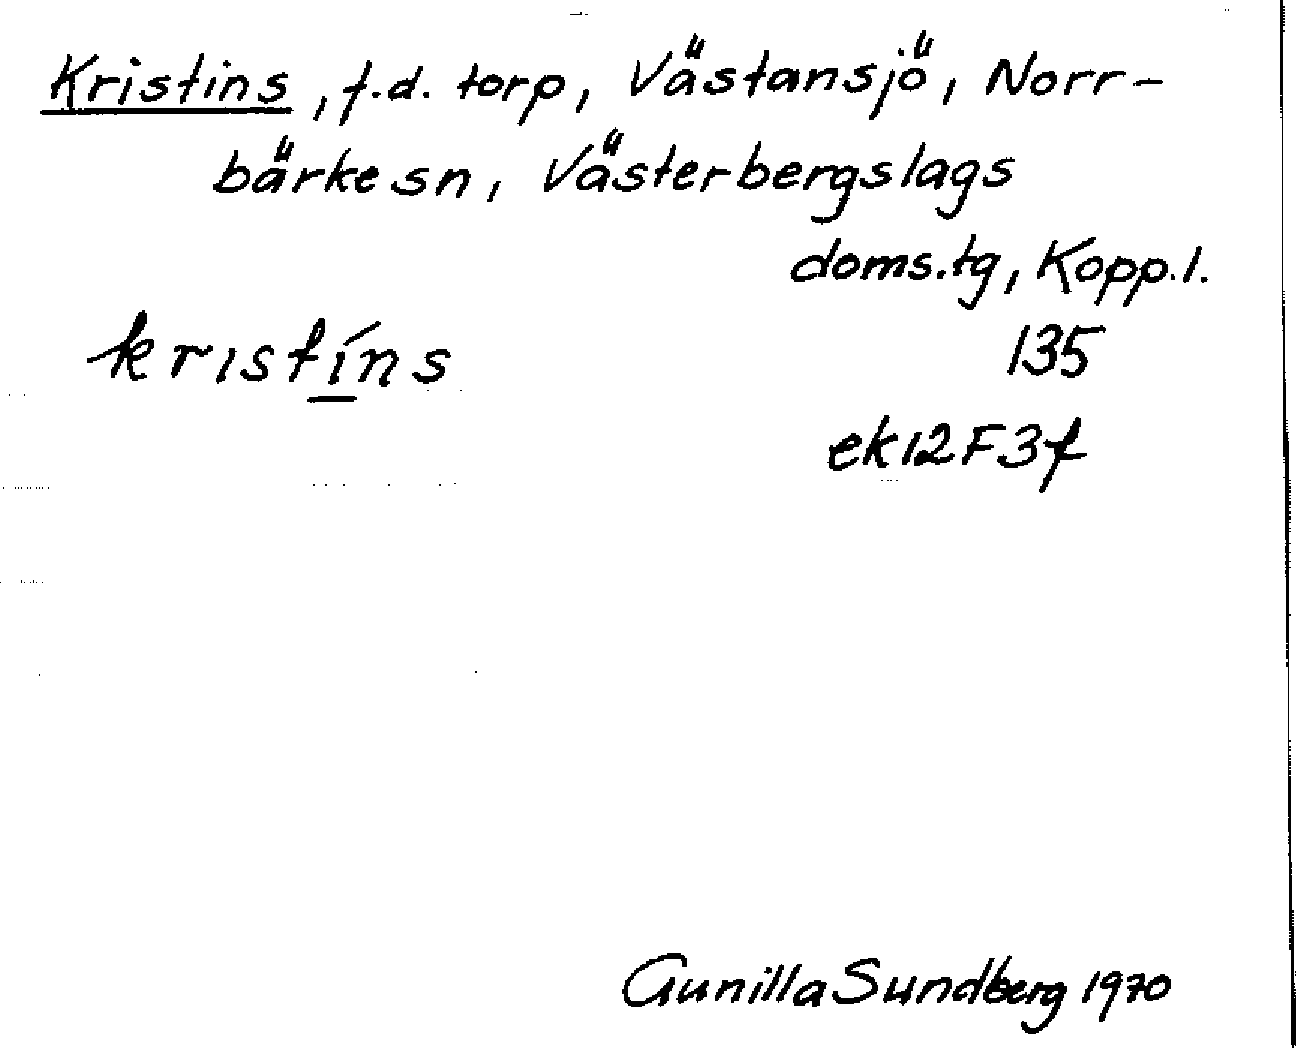 Kristins, f.d. torp, Västansjö, Norr-
bärke sn, Västerbergslags
doms.tg, Kopp.l.
krıstı́ns
135
ek 12 F 3 f
Gunilla Sundberg 1970